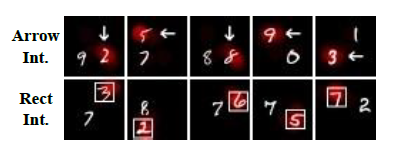 Arrow Int.
↓ 9 2
5 ← 7
↓ 8 8
9 ← 0
1 3 ←
Rect Int.
3 7
8 2
7 6
7 5
7 2